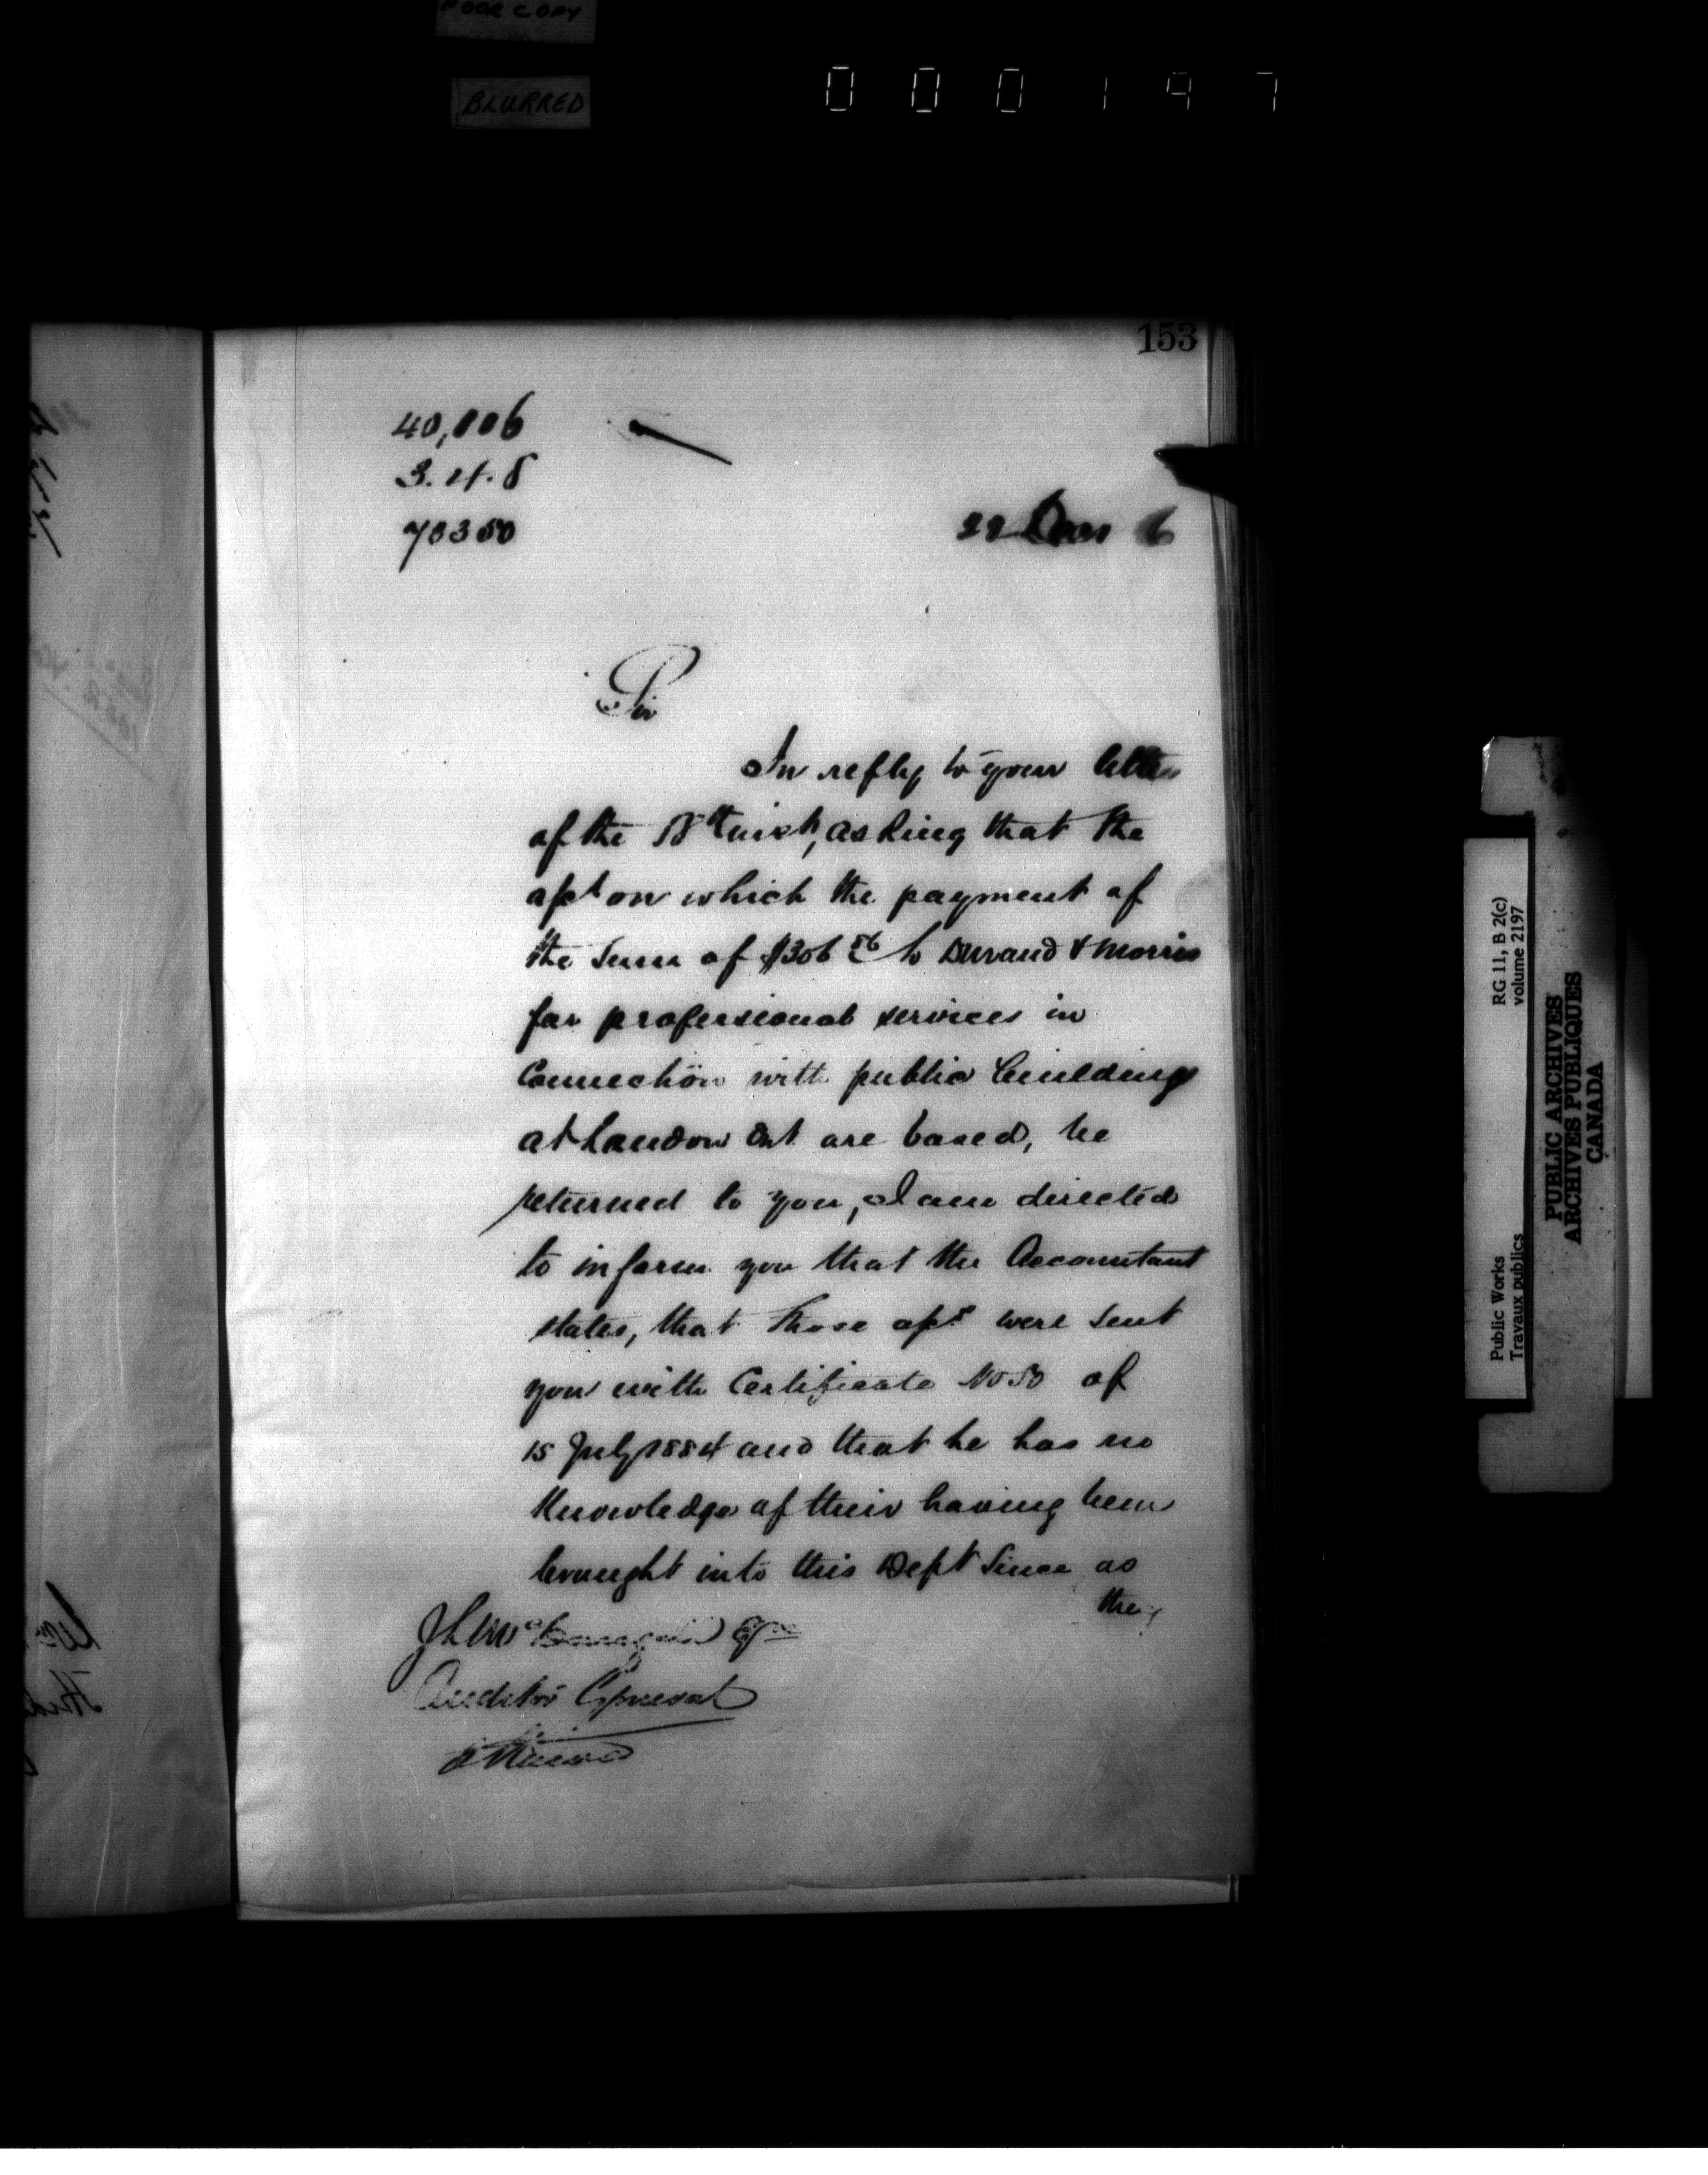 POOR COPY
BLURRED
000197
153
40,006
3.4.8
70350
22 Jan 6
Sir
In reply to your letter
of the 18th inst, asking that the
apl on which the payment of
the sum of $306 56 to Durand & Morris
for professional services in
Connection with public building
at London Ont are based, be
returned to you, I am directed
to inform you that the Accountant
states, that those aps were sent
you with Certificate No 50 of
15 July 1884 and that he has no
Knowledge of their having been
brought into this Dept Since as
they
J L McDougald Esq
Auditor General
Ottawa
Public Works
Travaux publics
RG 11, B 2(c)
volume 2197
PUBLIC ARCHIVES
ARCHIVES PUBLIQUES
CANADA